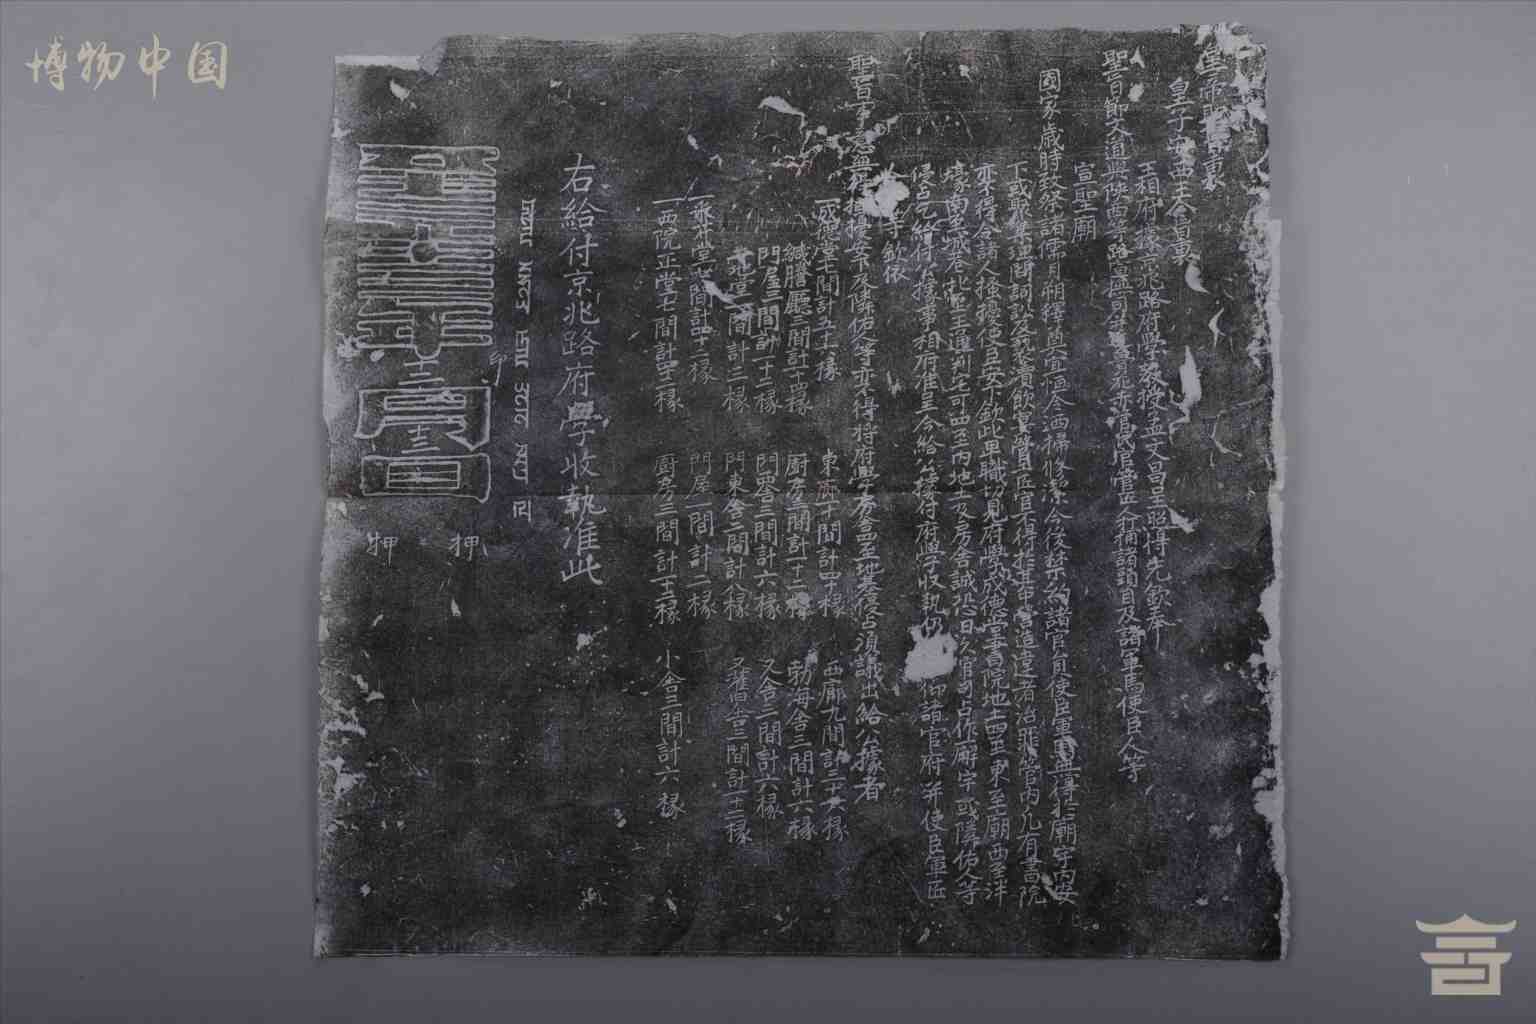 博物中国
皇帝聖旨裏
皇子安西王令旨裏
王相府據京兆路府學教授孟文昌呈照得先欽奉
聖旨節文道與陝西等路宣撫司并達魯花赤管民官管匠人打捕諸頭目及諸軍馬使臣人等
宣聖廟
國家歲時致祭諸儒月朔釋奠宜恒令洒掃修潔今後禁約諸官員使臣軍馬無得於廟宇內安
下或聚集理問詞訟及褻瀆飲宴管工匠官不得於其中營造違者治罪管內凡有書院
亦不得令諸人搔擾使臣安下欽此卑職切見府學成德堂書院地土四至東至廟西至泮
濠南至城巷北至王通判宅可四至內地土及房舍誠恐日久官司占作廨宇或隣佑人等
侵占乞給付公據事相府准呈今給公據付府學收執仍仰諸官府并使臣軍匠
人等欽依
聖旨事意無得搔擾安下及隣佑人等亦不得將府學房舍四至地基侵占須議出給公據者
一成德堂七間計五十六椽 東廊十間計四十椽 西廊九間計三十六椽
緘謄廳三間計十四椽 厨房三間計十二椽 勃海舍三間計六椽
門屋三間計一十二椽 門舍三間計六椽 又舍二間計六椽
地堂一間計二椽 門東舍二間計八椽 又舊舍三間計十二椽
一親井堂四間計四十二椽 門屋一間計二椽
一西院正堂七間計四十二椽 厨房三間計十五椽 小舍三間計六椽
右給付京兆路府學收執准此
印
至元十三年十三月日
押 押